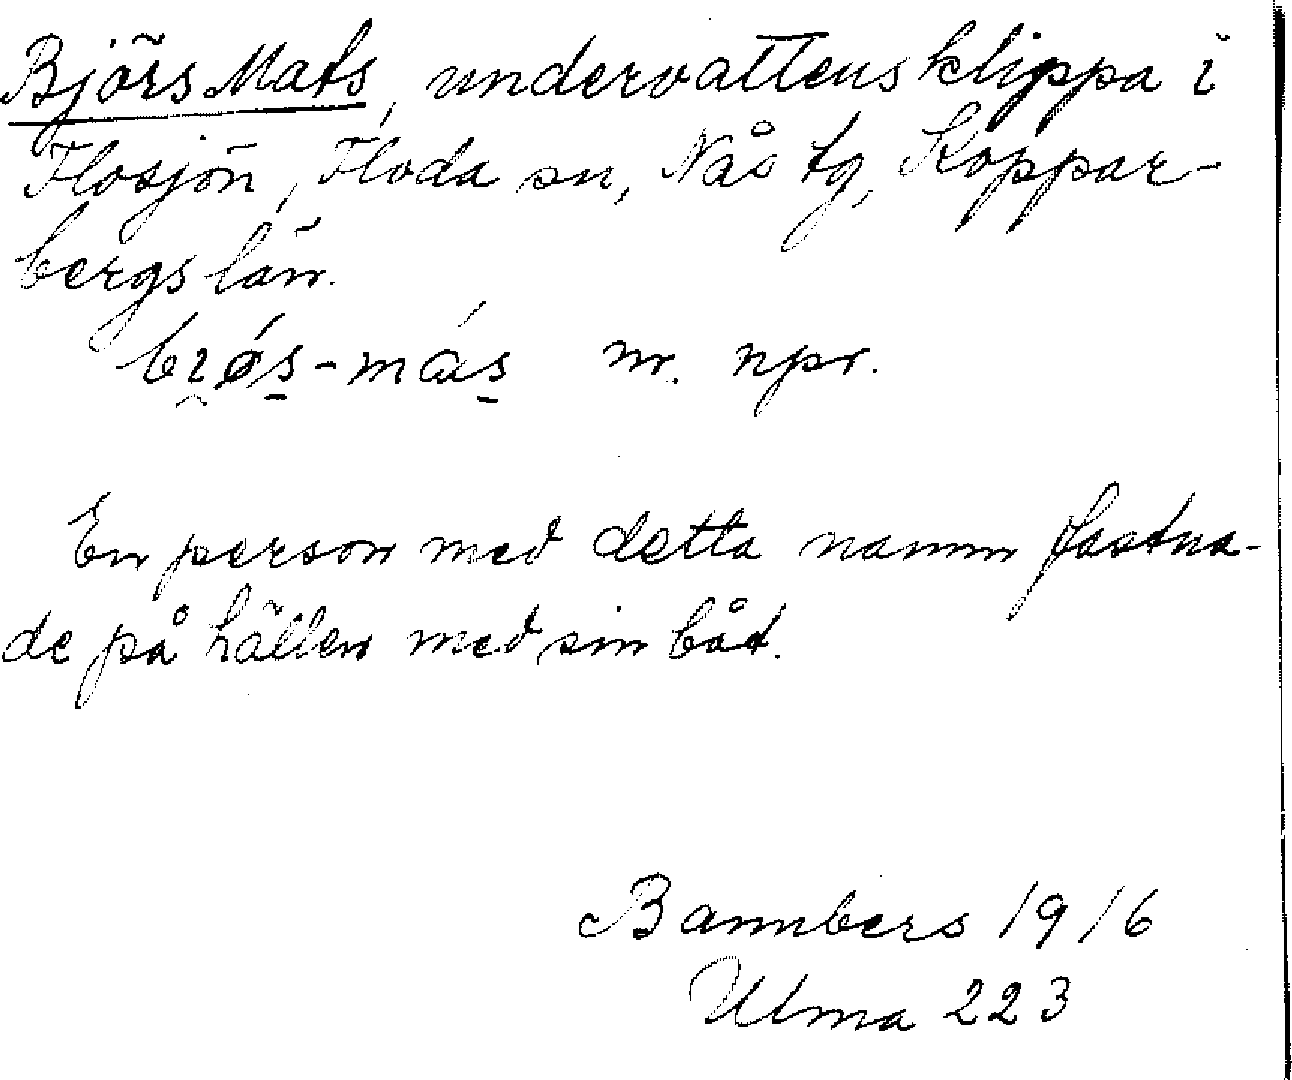 Björs Mats, undervattensklippa i
Flosjön, Floda sn, Nås tg, Koppar-
bergs län.
m. npr.
En person med detta namn fastna-
de på hällen med sin båt.
Bannbers 1916
Ulma 223